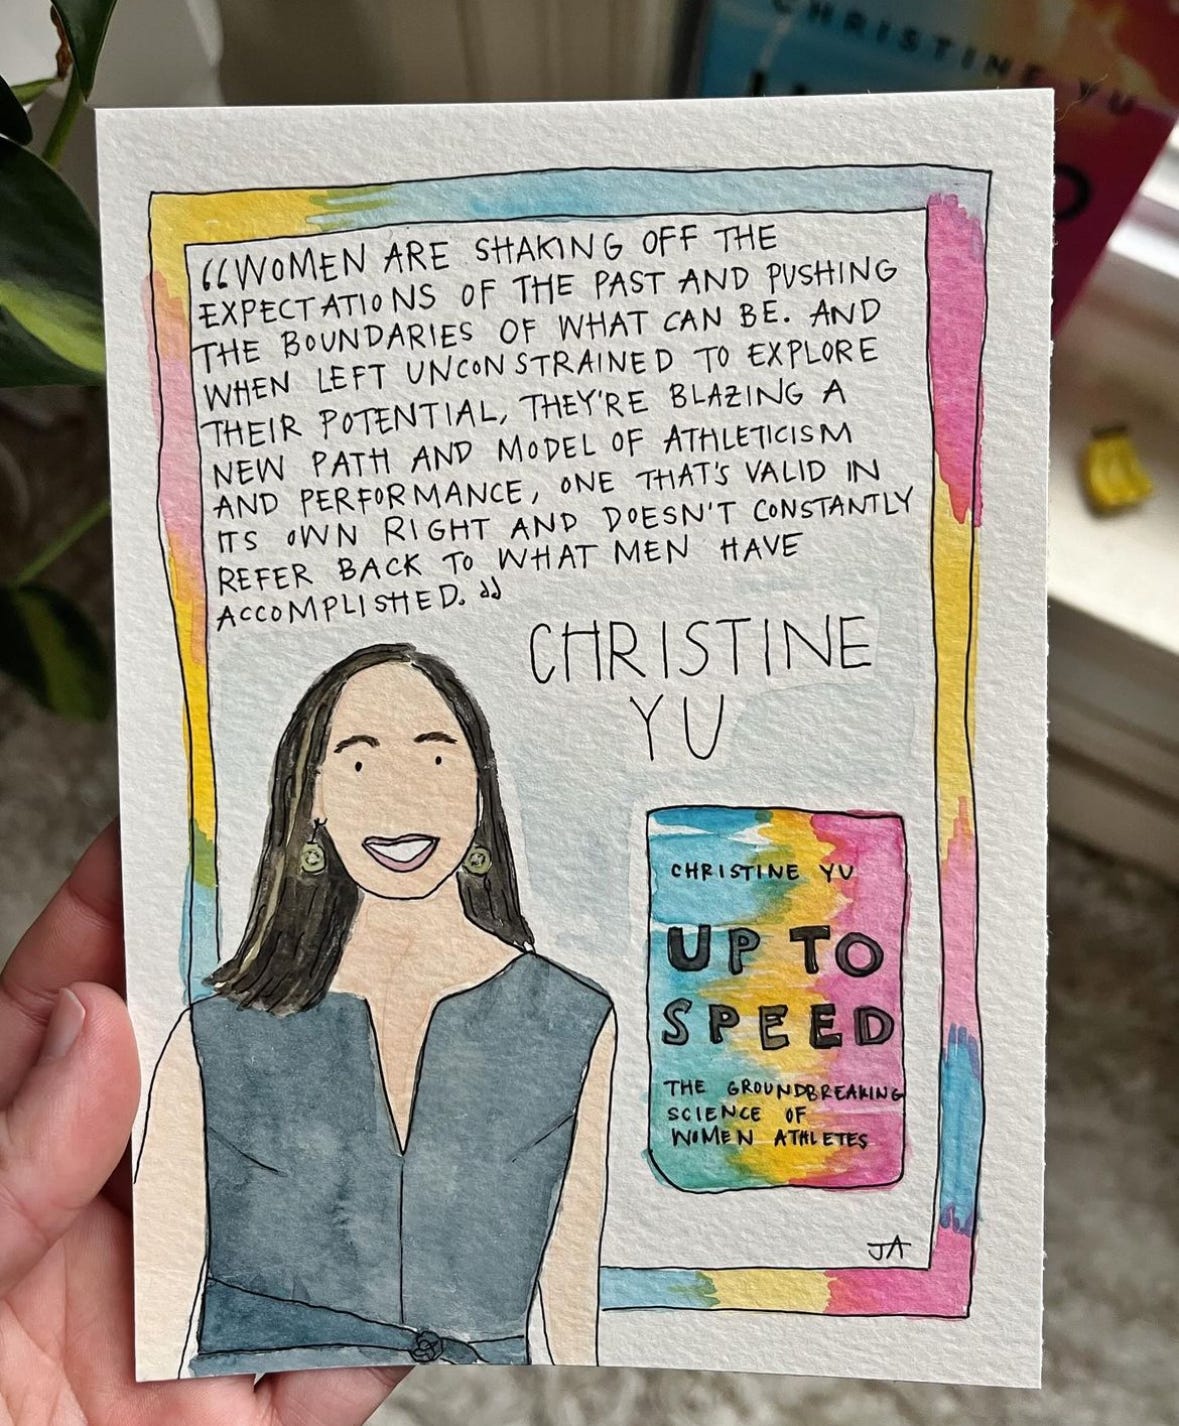 CHRISTINE YU
"WOMEN ARE SHAKING OFF THE
EXPECTATIONS OF THE PAST AND PUSHING
THE BOUNDARIES OF WHAT CAN BE. AND
WHEN LEFT UNCONSTRAINED TO EXPLORE
THEIR POTENTIAL, THEY'RE BLAZING A
NEW PATH AND MODEL OF ATHLETICISM
AND PERFORMANCE, ONE THAT'S VALID IN
ITS OWN RIGHT AND DOESN'T CONSTANTLY
REFER BACK TO WHAT MEN HAVE
ACCOMPLISHED."
CHRISTINE
YU
CHRISTINE YU
UP TO
SPEED
THE GROUNDBREAKING
SCIENCE OF
WOMEN ATHLETES
JA